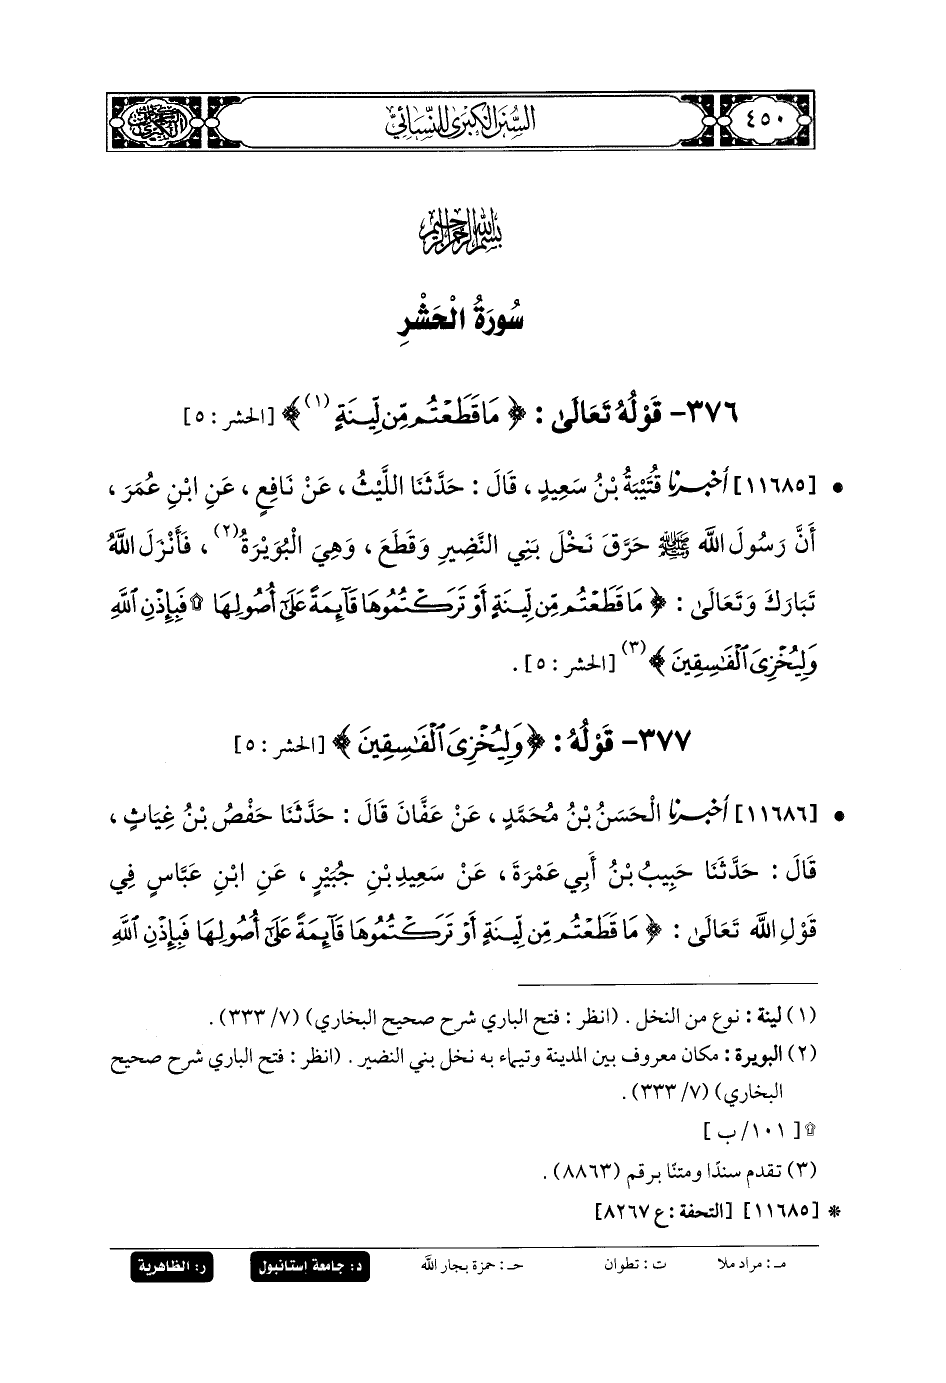 ٤٥٠
السُّنَنُ الكِبْرَى لِلنَّسَائِيِّ
بسم الله الرحمن الرحيم
سُورَةُ الْحَشْرِ
٣٧٦- قَوْلُهُ تَعَالَىٰ : ﴿ مَا قَطَعْتُم مِّن لِّينَةٍ (١) ﴾ [الحشر : ٥]
• [١١٦٨٥] أَخْبَرَنَا قُتَيْبَةُ بْنُ سَعِيدٍ ، قَالَ : حَدَّثَنَا اللَّيْثُ ، عَنْ نَافِعٍ ، عَنِ ابْنِ عُمَرَ ،
أَنَّ رَسُولَ اللَّهِ ﷺ حَرَّقَ نَخْلَ بَنِي النَّضِيرِ وَقَطَعَ ، وَهِيَ الْبُوَيْرَةُ(٢) ، فَأَنْزَلَ اللَّهُ
تَبَارَكَ وَتَعَالَىٰ : ﴿ مَا قَطَعْتُم مِّن لِّينَةٍ أَوْ تَرَكْتُمُوهَا قَآئِمَةً عَلَىٰٓ أُصُولِهَا ۩ فَبِإِذْنِ ٱللَّهِ
وَلِيُخْزِىَ ٱلْفَٰسِقِينَ ﴾(٣) [الحشر : ٥] .
٣٧٧- قَوْلُهُ : ﴿ وَلِيُخْزِىَ ٱلْفَٰسِقِينَ ﴾ [الحشر : ٥]
• [١١٦٨٦] أَخْبَرَنَا الْحَسَنُ بْنُ مُحَمَّدٍ ، عَنْ عَفَّانَ قَالَ : حَدَّثَنَا حَفْصُ بْنُ غِيَاثٍ ،
قَالَ : حَدَّثَنَا حَبِيبُ بْنُ أَبِي عَمْرَةَ ، عَنْ سَعِيدِ بْنِ جُبَيْرٍ ، عَنِ ابْنِ عَبَّاسٍ فِي
قَوْلِ اللَّهِ تَعَالَىٰ : ﴿ مَا قَطَعْتُم مِّن لِّينَةٍ أَوْ تَرَكْتُمُوهَا قَآئِمَةً عَلَىٰٓ أُصُولِهَا فَبِإِذْنِ ٱللَّهِ
(١) لينة : نوع من النخل . (انظر : فتح الباري شرح صحيح البخاري) (٧/ ٣٣٣) .
(٢) البويرة : مكان معروف بين المدينة وتيماء به نخل بني النضير . (انظر : فتح الباري شرح صحيح
البخاري) (٧/ ٣٣٣) .
۩ [ ١٠١/ ب ]
(٣) تقدم سندًا ومتنًا برقم (٨٨٦٣) .
* [١١٦٨٥] [التحفة : ع ٨٢٦٧]
مـ : مراد ملا ت : تطوان حـ : حمزة بجار الله د: جامعة إستانبول ر: الظاهرية